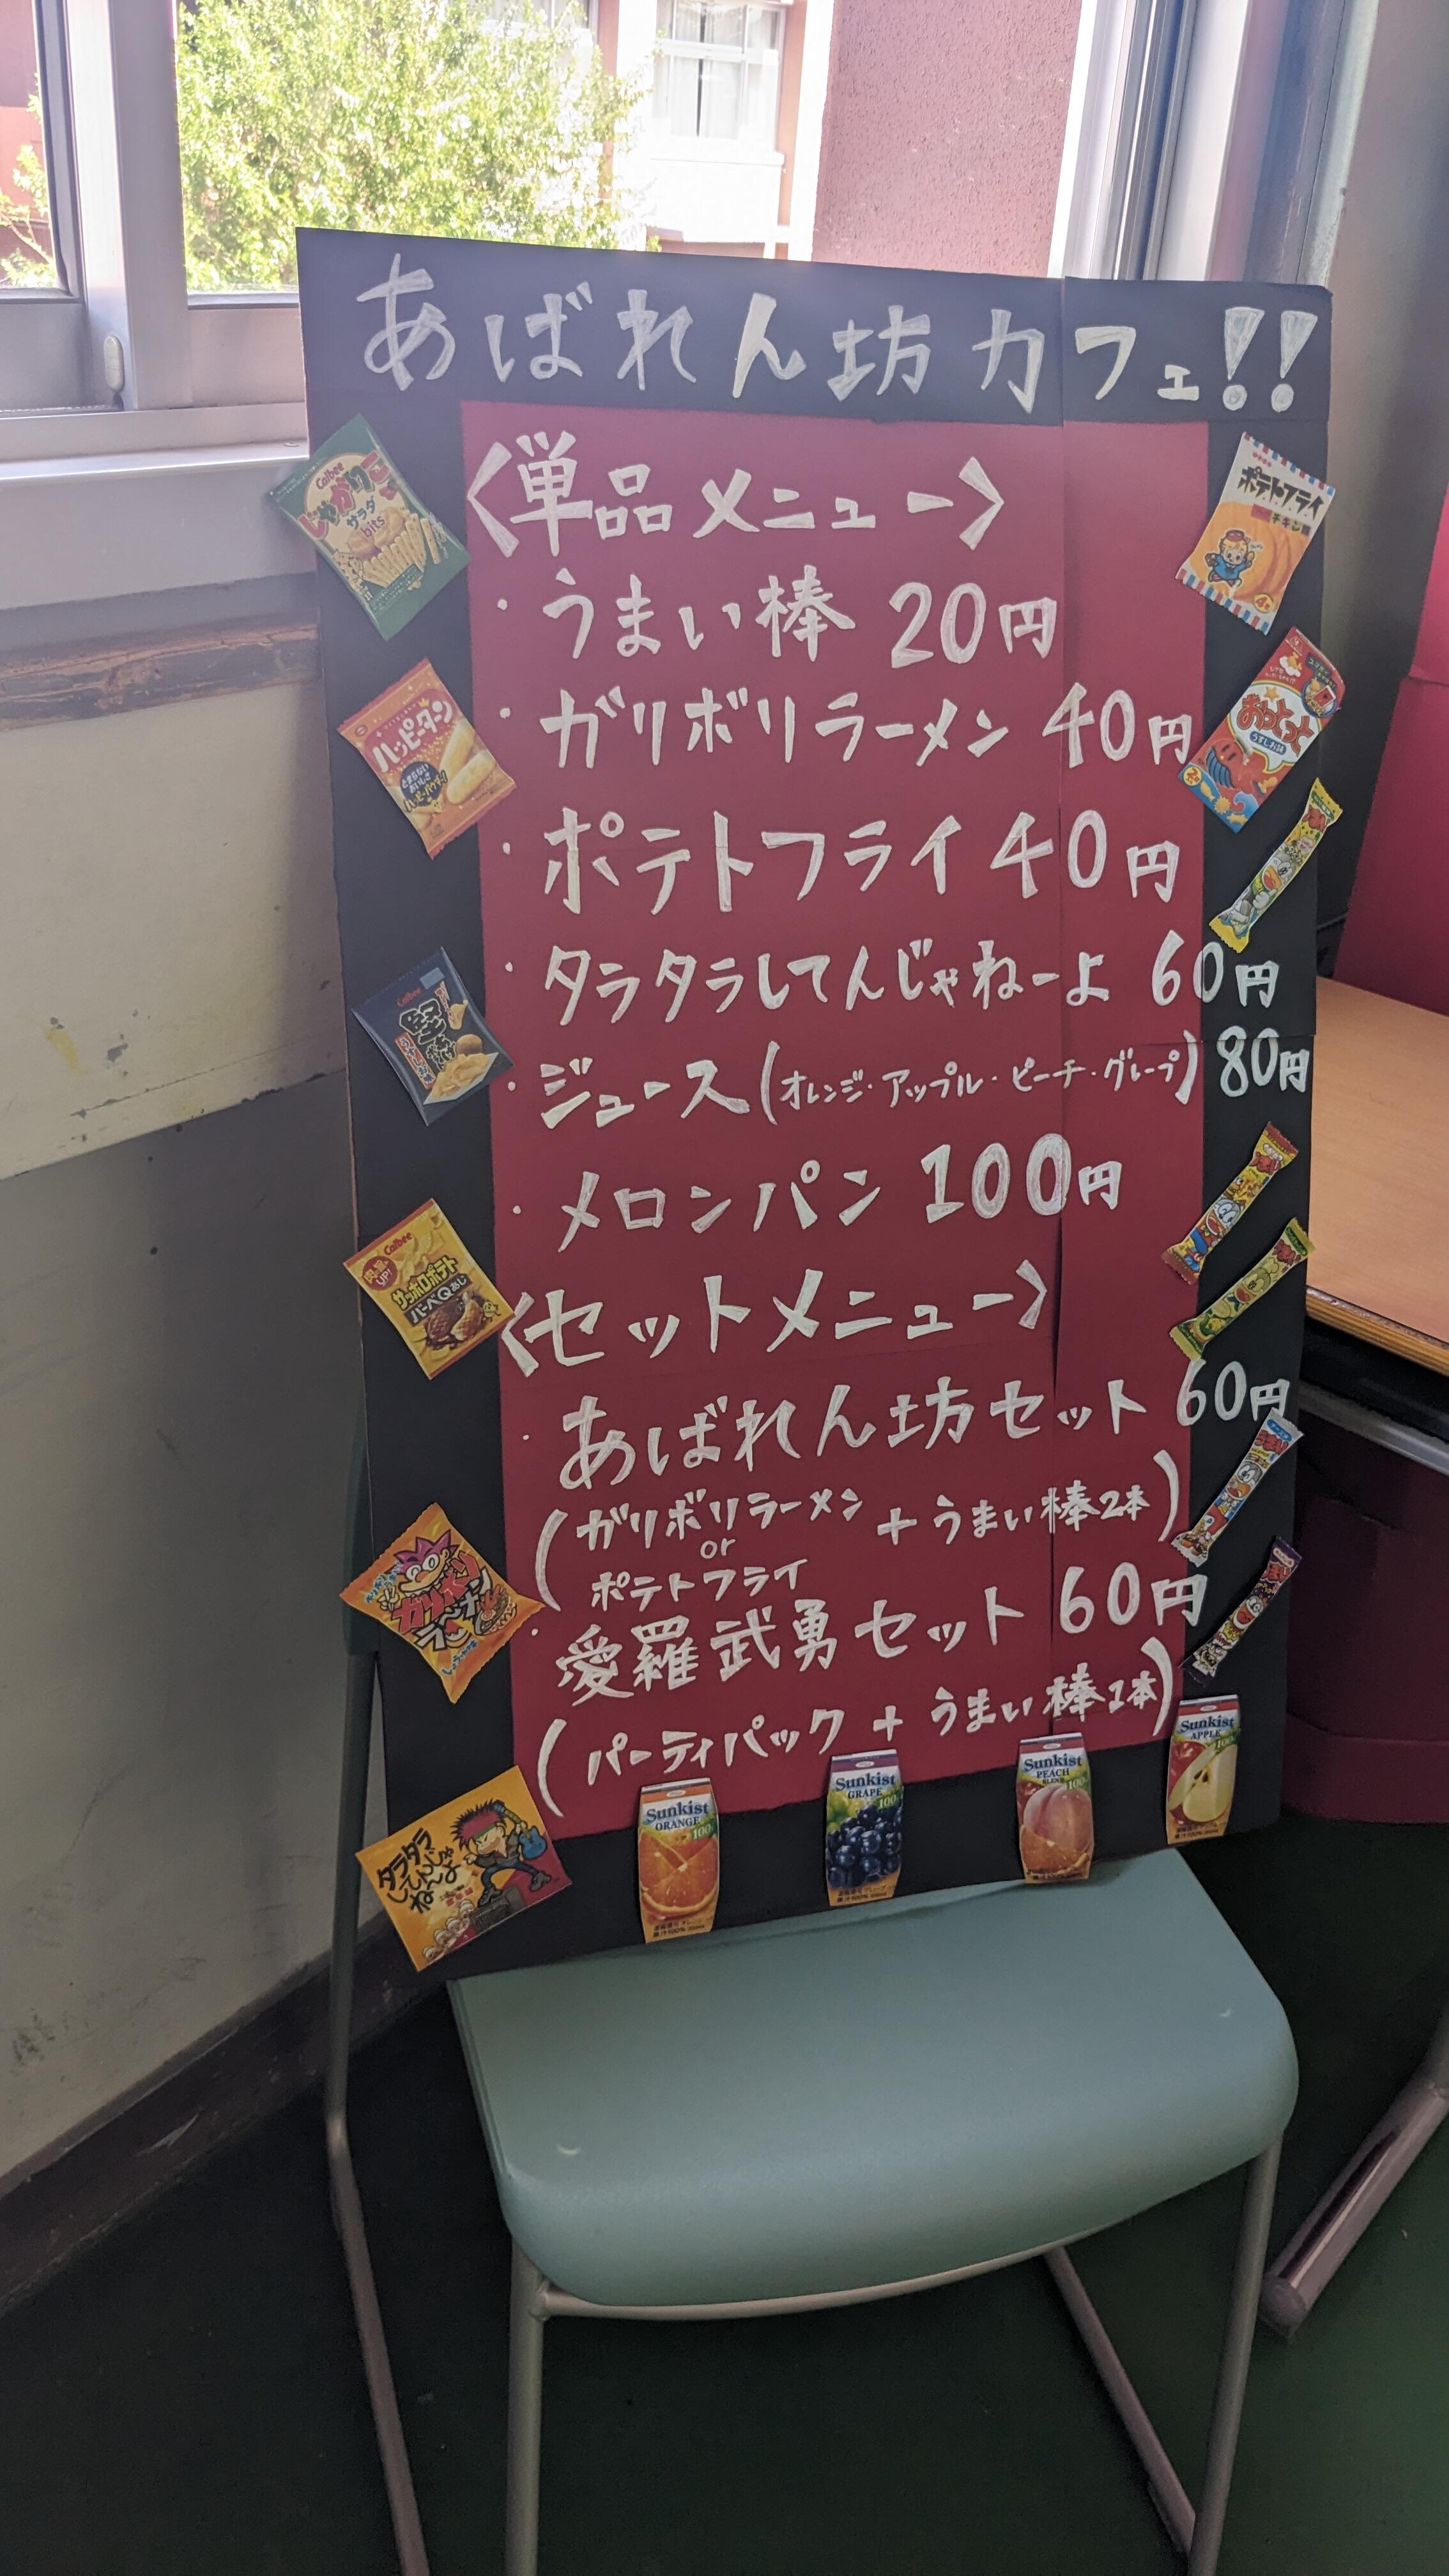 あばれん坊カフェ!!
〈単品メニュー〉
・うまい棒 20円
・ガリボリラーメン 40円
・ポテトフライ 40円
・タラタラしてんじゃねーよ 60円
・ジュース(オレンジ・アップル・ピーチ・グレープ) 80円
・メロンパン 100円
〈セットメニュー〉
・あばれん坊セット 60円
(ガリボリラーメン or ポテトフライ + うまい棒2本)
・愛羅武勇セット 60円
(パーティパック + うまい棒1本)
Calbee
じゃがりこ
サラダ
bits
ハッピーターン
Calbee
堅あげポテト
Calbee
サッポロポテト
バーベQあじ
ガリボリ
ラーメン
タラタラ
してんじゃ
ねーよ
ポテトフライ
おっとっと
うすしお味
Sunkist
ORANGE
100
Sunkist
GRAPE
100
Sunkist
PEACH
BLEND
100
Sunkist
APPLE
100